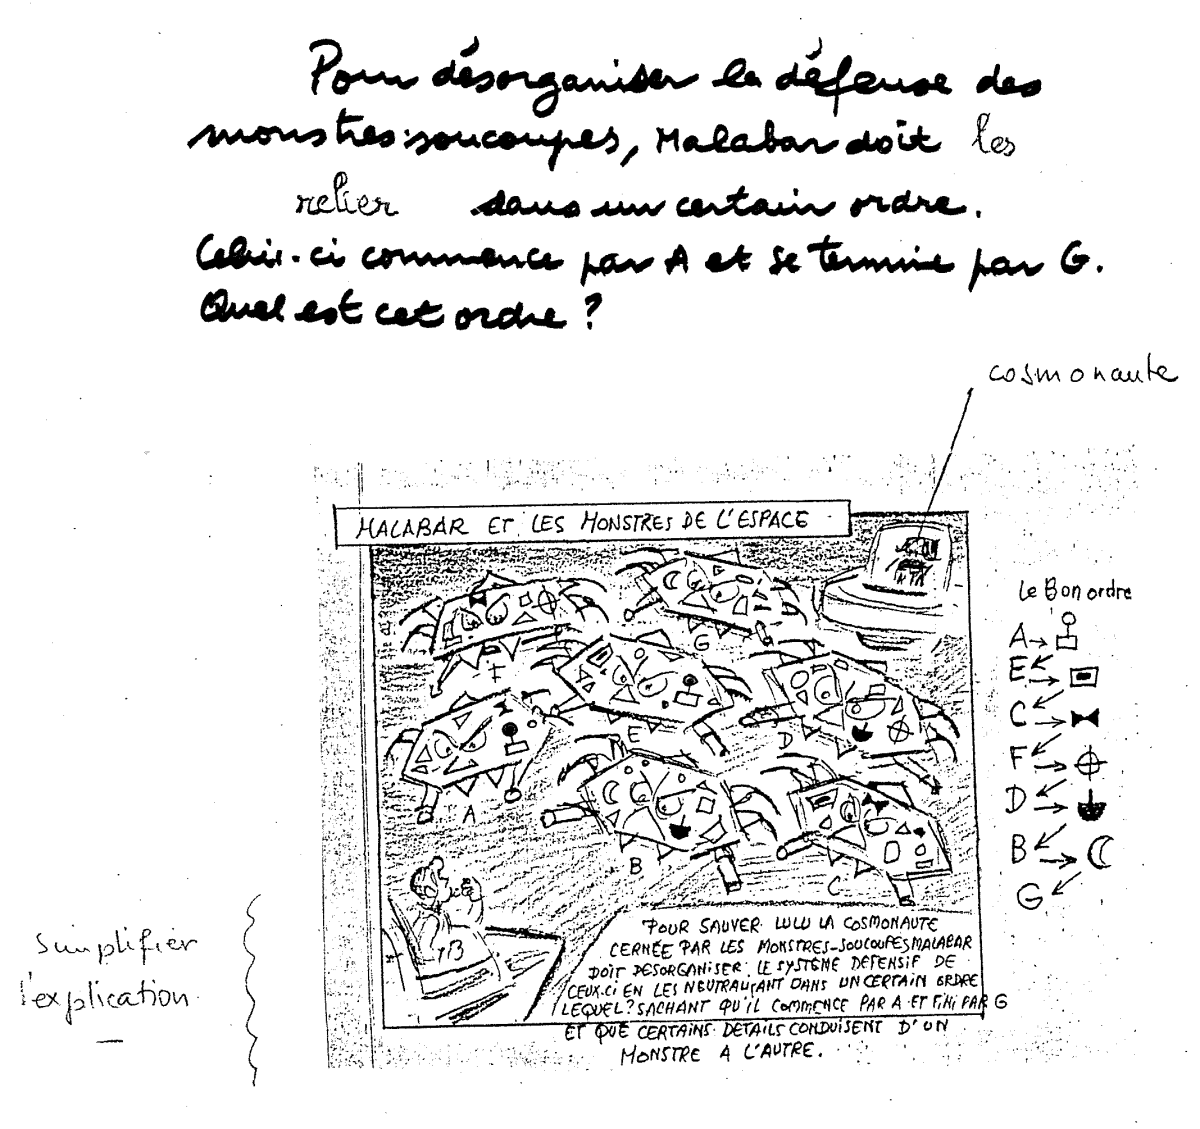 Pour désorganiser la défense des
monstres-soucoupes, Malabar doit les
relier dans un certain ordre.
Celui-ci commence par A et se termine par G.
Quel est cet ordre ?
cosmonaute
MALABAR ET LES MONSTRES DE L'ESPACE
Le Bon ordre
A
E
C
F
D
B
G
F
G
E
D
A
B
C
simplifier
l'explication
POUR SAUVER LULU LA COSMONAUTE
CERNÉE PAR LES MONSTRES-SOUCOUPES MALABAR
DOIT DESORGANISER LE SYSTÈME DEFENSIF DE
CEUX-CI EN LES NEUTRALISANT DANS UN CERTAIN ORDRE
LEQUEL? SACHANT QU'IL COMMENCE PAR A ET FINI PAR G
ET QUE CERTAINS DETAILS CONDUISENT D'UN
MONSTRE A L'AUTRE.